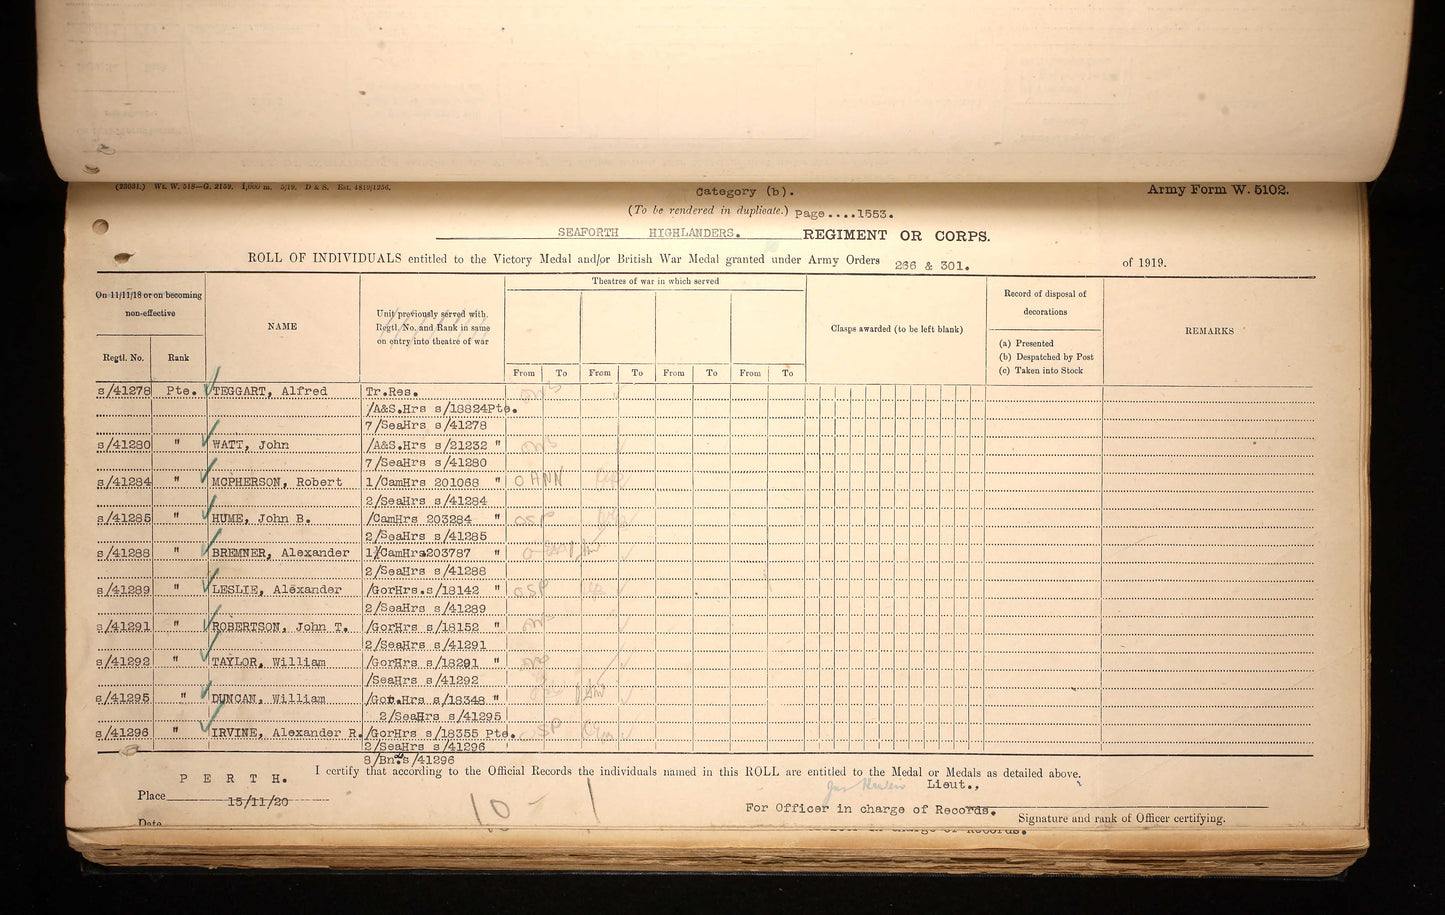 (23031.) Wt. W. 518—G. 2159. 1,000 m. 5/19. D & S. Est. 4819/1256.
Category (b).
Army Form W. 5102.
(To be rendered in duplicate.) Page....1553.
SEAFORTH HIGHLANDERS. REGIMENT OR CORPS.
ROLL OF INDIVIDUALS entitled to the Victory Medal and/or British War Medal granted under Army Orders 266 & 301. of 1919.
On 11/11/18 or on becoming non-effective
Regtl. No. Rank
NAME
Unit previously served with.
Regtl. No. and Rank in same
on entry into theatre of war
Theatres of war in which served
From To From To From To From To
Clasps awarded (to be left blank)
Record of disposal of decorations
(a) Presented
(b) Despatched by Post
(c) Taken into Stock
REMARKS
s/41278 Pte. TEGGART, Alfred Tr.Res.
/A&S.Hrs s/18824Pte.
7/SeaHrs s/41278
s/41280 " WATT, John /A&S.Hrs s/21232 "
7/SeaHrs s/41280
s/41284 " MCPHERSON, Robert 1/CamHrs 201068 "
2/SeaHrs s/41284
s/41285 " HUME, John B. /CamHrs 203284 " OSP
2/SeaHrs s/41285
s/41288 " BREMNER, Alexander 1/CamHrs203787 "
2/SeaHrs s/41288
s/41289 " LESLIE, Alexander /GorHrs.s/18142 " OSP
2/SeaHrs s/41289
s/41291 " ROBERTSON, John T. /GorHrs s/18152 "
2/SeaHrs s/41291
s/41292 " TAYLOR, William /GorHrs s/18291 "
/SeaHrs s/41292
s/41295 " DUNCAN, William /Gor.Hrs s/18348 "
2/SeaHrs s/41295
s/41296 " IRVINE, Alexander R. /GorHrs s/18355 Pte. OSP
2/SeaHrs s/41296
8/Bn. s/41296
I certify that according to the Official Records the individuals named in this ROLL are entitled to the Medal or Medals as detailed above.
PERTH.
Lieut.,
Place
15/11/20
10 - 1
For Officer in charge of Records.
Signature and rank of Officer certifying.
Date